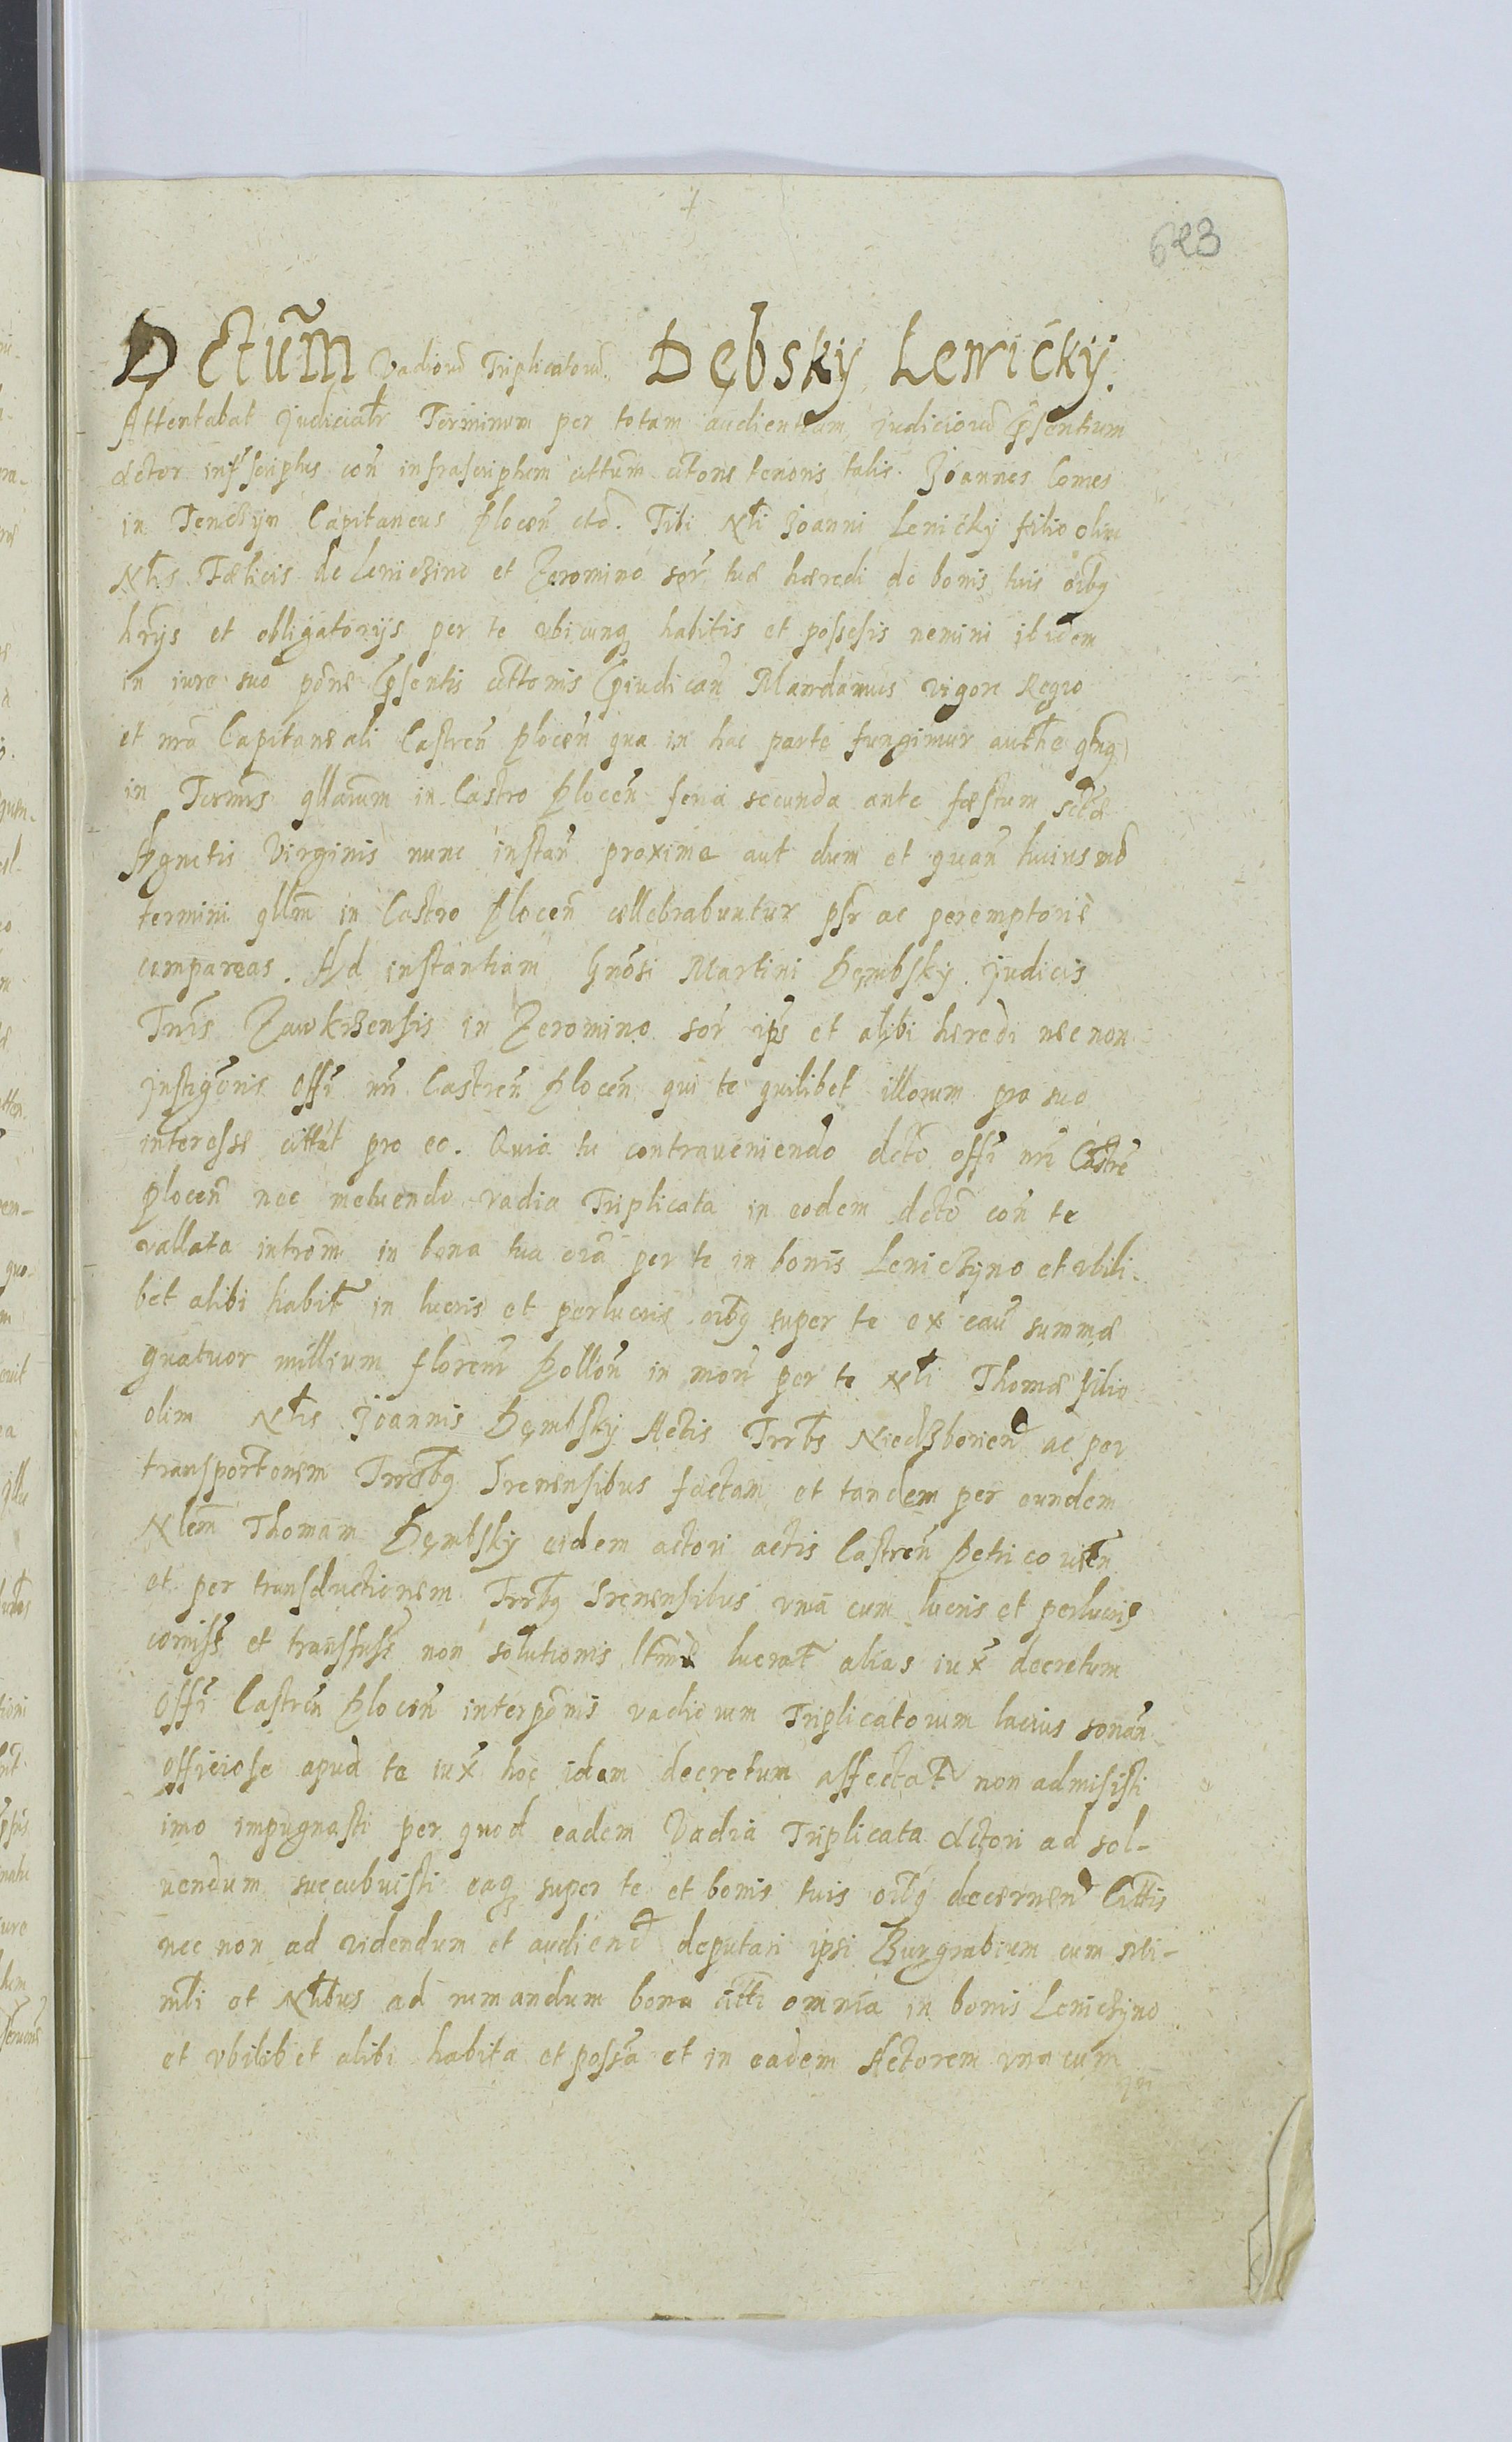 623
Dctum̃ Vadiorũ Triplicatorũ Dębsky Lenićky.
Attentabat judicialr Terminum per totam audientiam judiciorũ p̃sentium
Actor infrscriptus coñ infrascriptum cittum citt̃ons tenoris talis. Joannes Comes
in Tenczyn Capitaneus płoceñ etc̃. Tibi Nłi Joanni Lenićky filio olim
Nłis Fælicis de Leniczino et Zeromino sor̃ tuæ hæredi de bonis tuis oĩbq
hrijs et obligatorijs per te vbicunq habitis et possessis nemini ibidem
in iure suo pōne p̃sentis cittonis p̃iudicañ Mandamus vigore Regio
et nrã Capitaneali Castreñ płoceñ qua in hac parte fungimur authte
in Termĩs qllarum in Castro płoceñ feria secunda ante fæstum sctæ
Agnetis Virginis nunc instañ proxime aut dum et quañ huiusmõ
termini qllm̃ in Castro płoceñ cellebrabuntur psr ac peremptorie
compareas. Ad instantiam Gnõsi Martini Dęmbsky judicis
Trr̃is Zawkrzensis in Zeromino sor̃ ips̃ et alibi heredi nec non
jnstigõris Offĩ nrĩ Castreñ płoceñ qui te quilibet illorum pro suo
interesse cittat pro eo. Quia tu contraueniendo dcto offĩ nrĩ Castrẽ
płoceñ nec metuendo vadia Triplicata in eodem dctõ coñ te
vallata introm̃ in bona tua oĩa per te in bonis Leniczyno et vbili-
bet alibi habit̃ in lucris et perlucris oĩbq super te ex cau summæ
quatuor millium floreñ polloñ in moñ per te Nłi Thomæ filio
olim Nłis Joannis Dęmbsky Actis Trr̃bs Niedzborieñ ac per
transportonem Trr̃bq Srenensibus factam et tandem per eundem
Nlem̃ Thomam Dęmbsky eidem actori actis Castreñ petricouień
et per transductionem Trr̃bq Srenensibus vnia cum lucris et perlucris
comiss̃ et transfuss̃ non solutionis ltm̃e lucrat̃ alias iux̃ decretum
Offĩ Castreñ płoceñ interpõnis vadiorum Triplicatorum lacius sonañ
officiose apud te iux̃ hoc idem decretum affectat̃ non admisisti
imo impugnasti per quod eadem Vadia Triplicata Actori ad sol-
uendum succubuisti eaq super te et bonis tuis oĩbq decerneñ Cittis
nec non ad videndum et audienđ deputari ipsi Burgrabium cum Mi-
nłi et Nłibus ad rumandum bona citti omnia in bonis Leniczyno
et vbilibet alibi habita et possã et in eadem Actorem vna cum